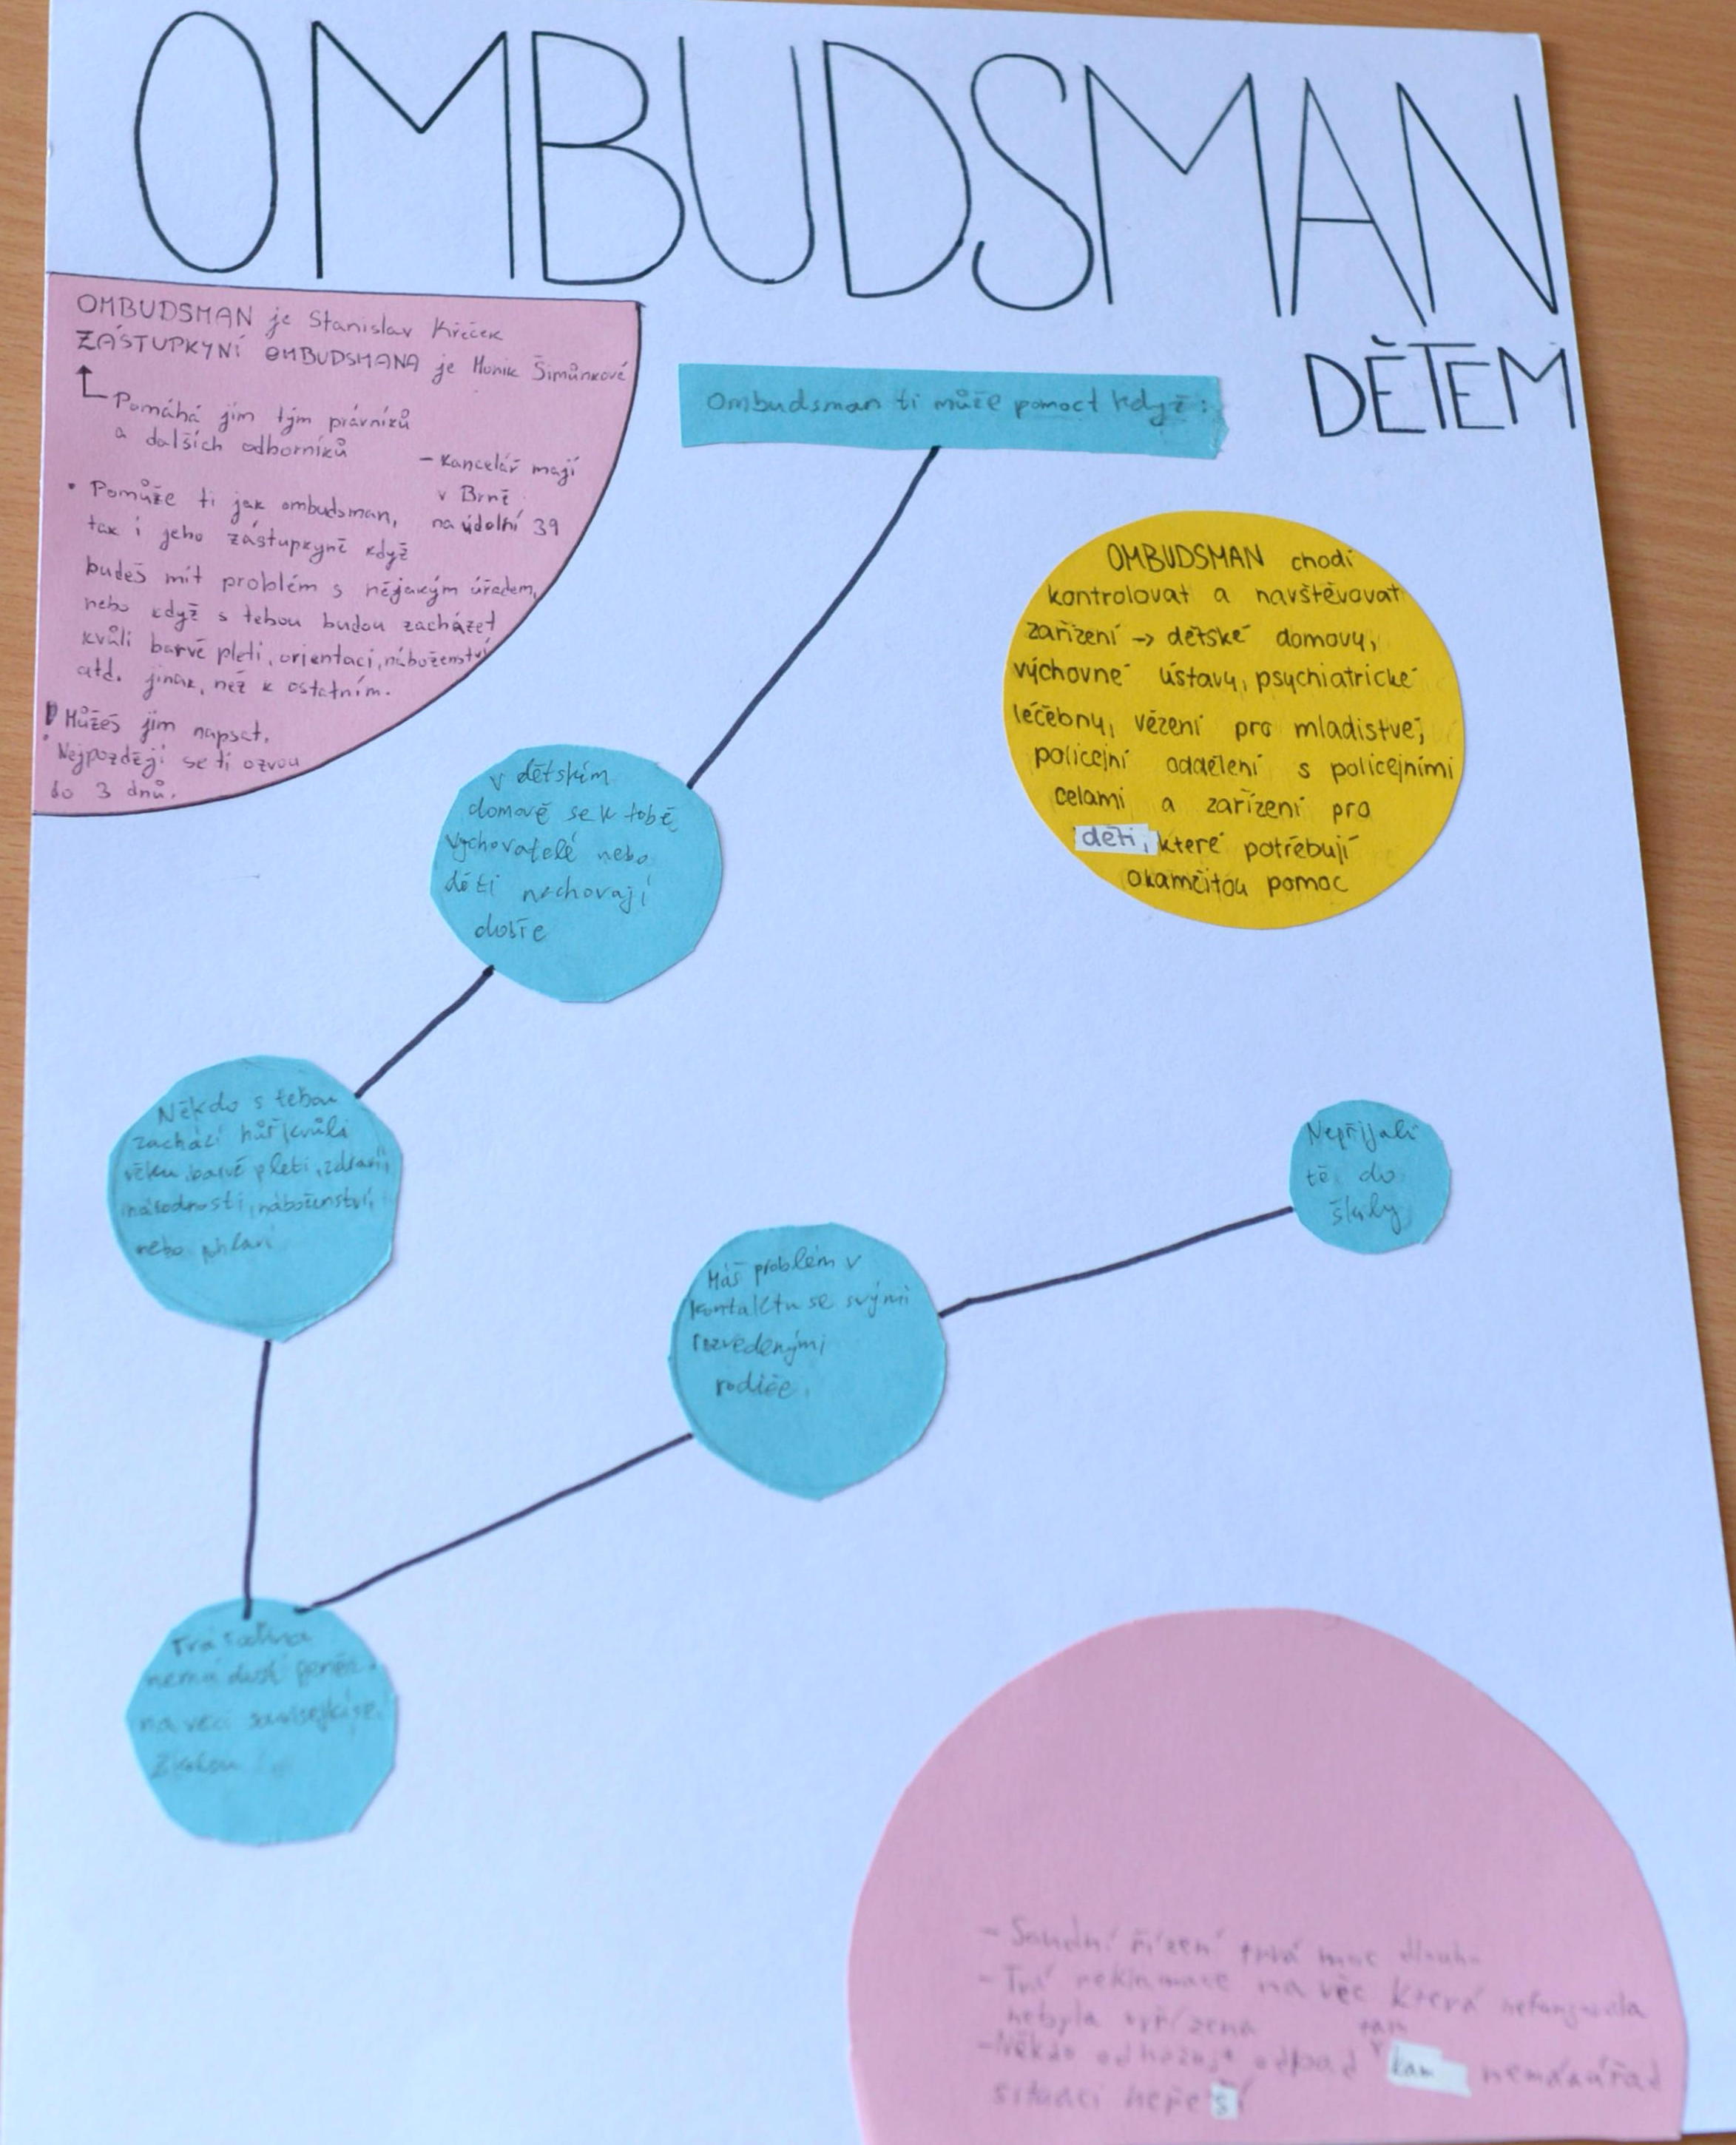 OMBUDSMAN
DĚTEM
OMBUDSMAN je Stanislav Křeček
ZÁSTUPKYNÍ OMBUDSMANA je Monik Šimůnková
Pomáhá jim tým právníků
a dalších odborníků
- Kancelář mají
v Brně
na údolní 39
• Pomůže ti jak ombudsman,
tak i jeho zástupkyně když
budeš mít problém s nějakým úřadem,
nebo když s tebou budou zacházet
kvůli barvě pleti, orientaci, náboženství
atd. jinak, než k ostatním.
! Můžeš jim napsat.
Nejpozději se ti ozvou
do 3 dnů.
Ombudsman ti může pomoct když:
OMBUDSMAN chodí
kontrolovat a navštěvovat
zařízení → dětské domovy,
výchovné ústavy, psychiatrické
léčebny, vězení pro mladistvé,
policejní oddělení s policejními
celami a zařízení pro
děti, které potřebují
okamčitou pomoc
v dětským
domově se k tobě
vychovatelé nebo
děti nechovají
dobře
Někdo s tebou
zachází hůř kvůli
věku, barvě pleti, zdraví,
národnosti, náboženství,
nebo pohlaví
Nepřijali
tě do
školy
Máš problém v
kontaktu se svými
rozvedenými
rodiče.
Tvá rodina
nemá dost peněz
na věci souvisejíci se
školou
- Soudní řízení trvá moc dlouho
- Tvá reklamace na věc která nefungovala
nebyla vyřízena
- Někdo odhazuje odpad tam kam nemá a úřad
situaci neřeší